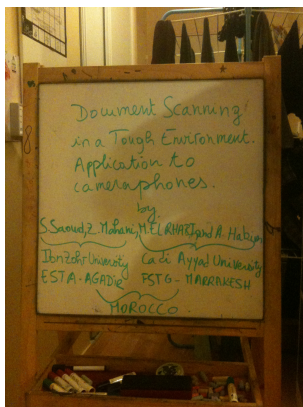 Document Scanning
in a Tough Environment.
Application to
cameraphones.
by
S.Saoud, Z. Mahani, M.EL RHABI and A. Hakim
Ibn Zohr University Cadi Ayyad University
ESTA-AGADIR FSTG-MARRAKESH
MOROCCO